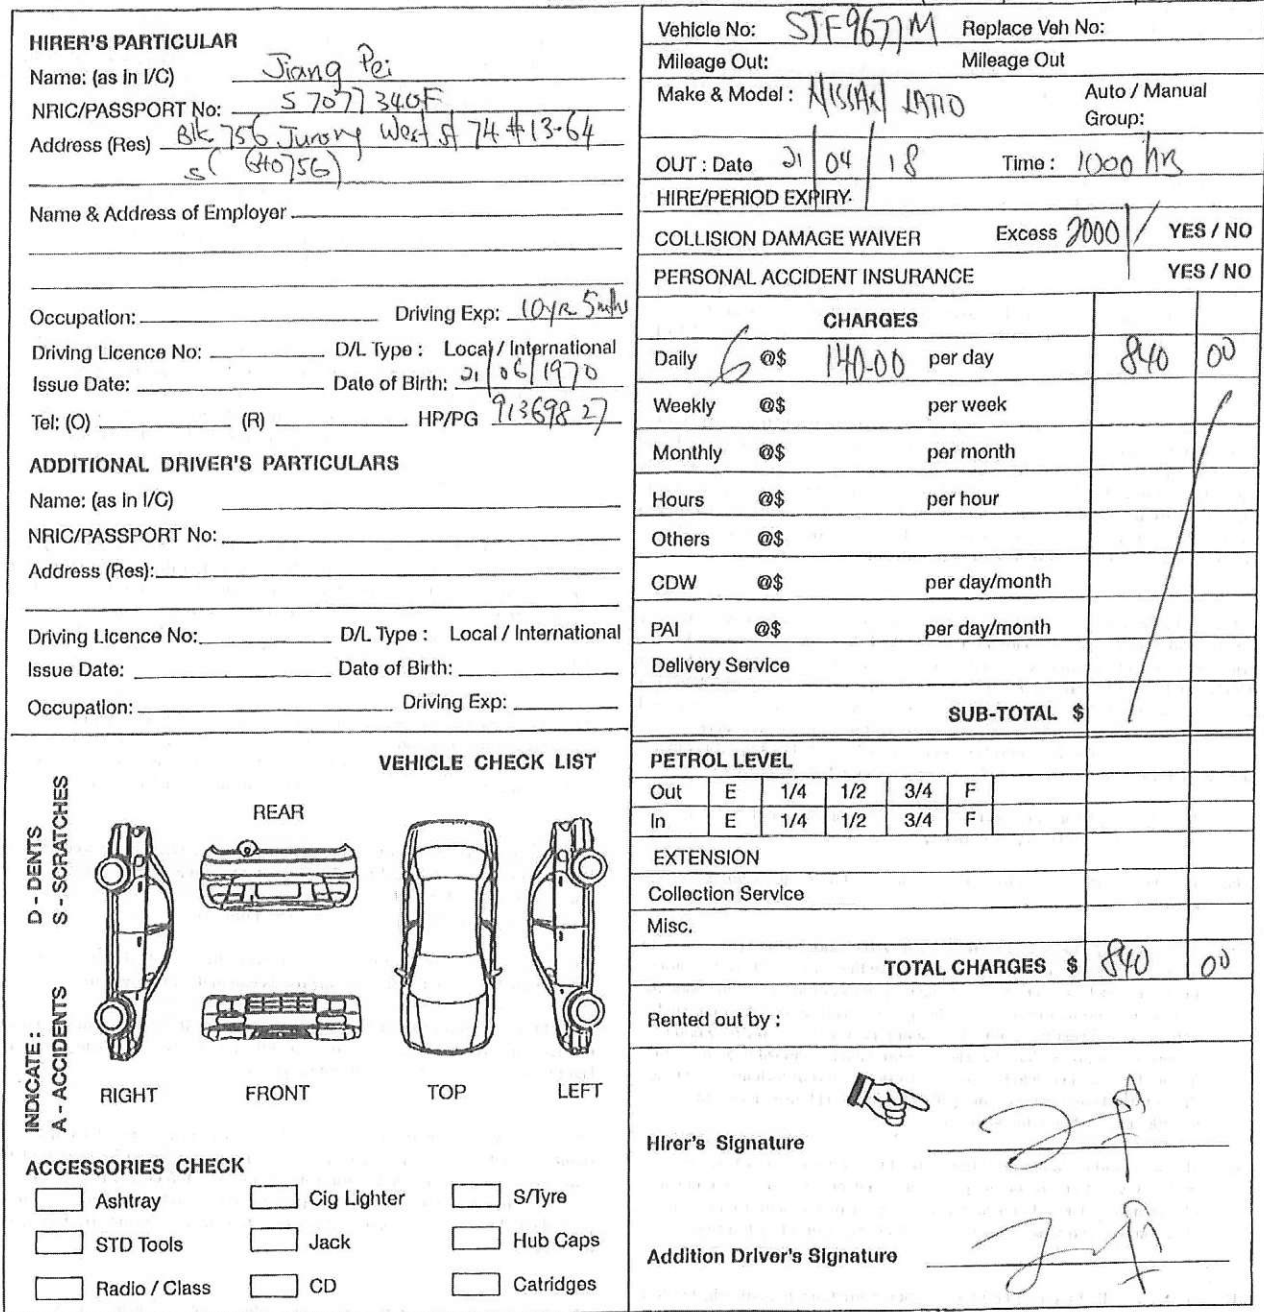 HIRER'S PARTICULAR
Name: (as in I/C) Jiang Pei
NRIC/PASSPORT No: S7077340F
Address (Res) Blk 756 Jurong West st 74 #13-64
S(640756)
Name & Address of Employer
Occupation: Driving Exp: 10yr 5mths
Driving Licence No: D/L Type : Local / International
Issue Date: Date of Birth: 21/06/1970
Tel: (O) (R) HP/PG 91369827
ADDITIONAL DRIVER'S PARTICULARS
Name: (as in I/C)
NRIC/PASSPORT No:
Address (Res):
Driving Licence No: D/L Type : Local / International
Issue Date: Date of Birth:
Occupation: Driving Exp:
VEHICLE CHECK LIST
INDICATE :
A - ACCIDENTS
D - DENTS
S - SCRATCHES
REAR
RIGHT FRONT TOP LEFT
ACCESSORIES CHECK
Ashtray Cig Lighter S/Tyre
STD Tools Jack Hub Caps
Radio / Class CD Catridges
Vehicle No: 9677M Replace Veh No:
Mileage Out: Mileage Out
Make & Model : NISSAN LATIO Auto / Manual
Group:
OUT : Date 21/04/18 Time : 1000 hrs
HIRE/PERIOD EXPIRY.
COLLISION DAMAGE WAIVER Excess 2000/ YES / NO
PERSONAL ACCIDENT INSURANCE YES / NO
CHARGES
Daily 6 @$ 140.00 per day 840 00
Weekly @$ per week
Monthly @$ per month
Hours @$ per hour
Others @$
CDW @$ per day/month
PAI @$ per day/month
Delivery Service
SUB-TOTAL $
PETROL LEVEL
Out E 1/4 1/2 3/4 F
In E 1/4 1/2 3/4 F
EXTENSION
Collection Service
Misc.
TOTAL CHARGES $ 840 00
Rented out by :
Hirer's Signature
Addition Driver's Signature